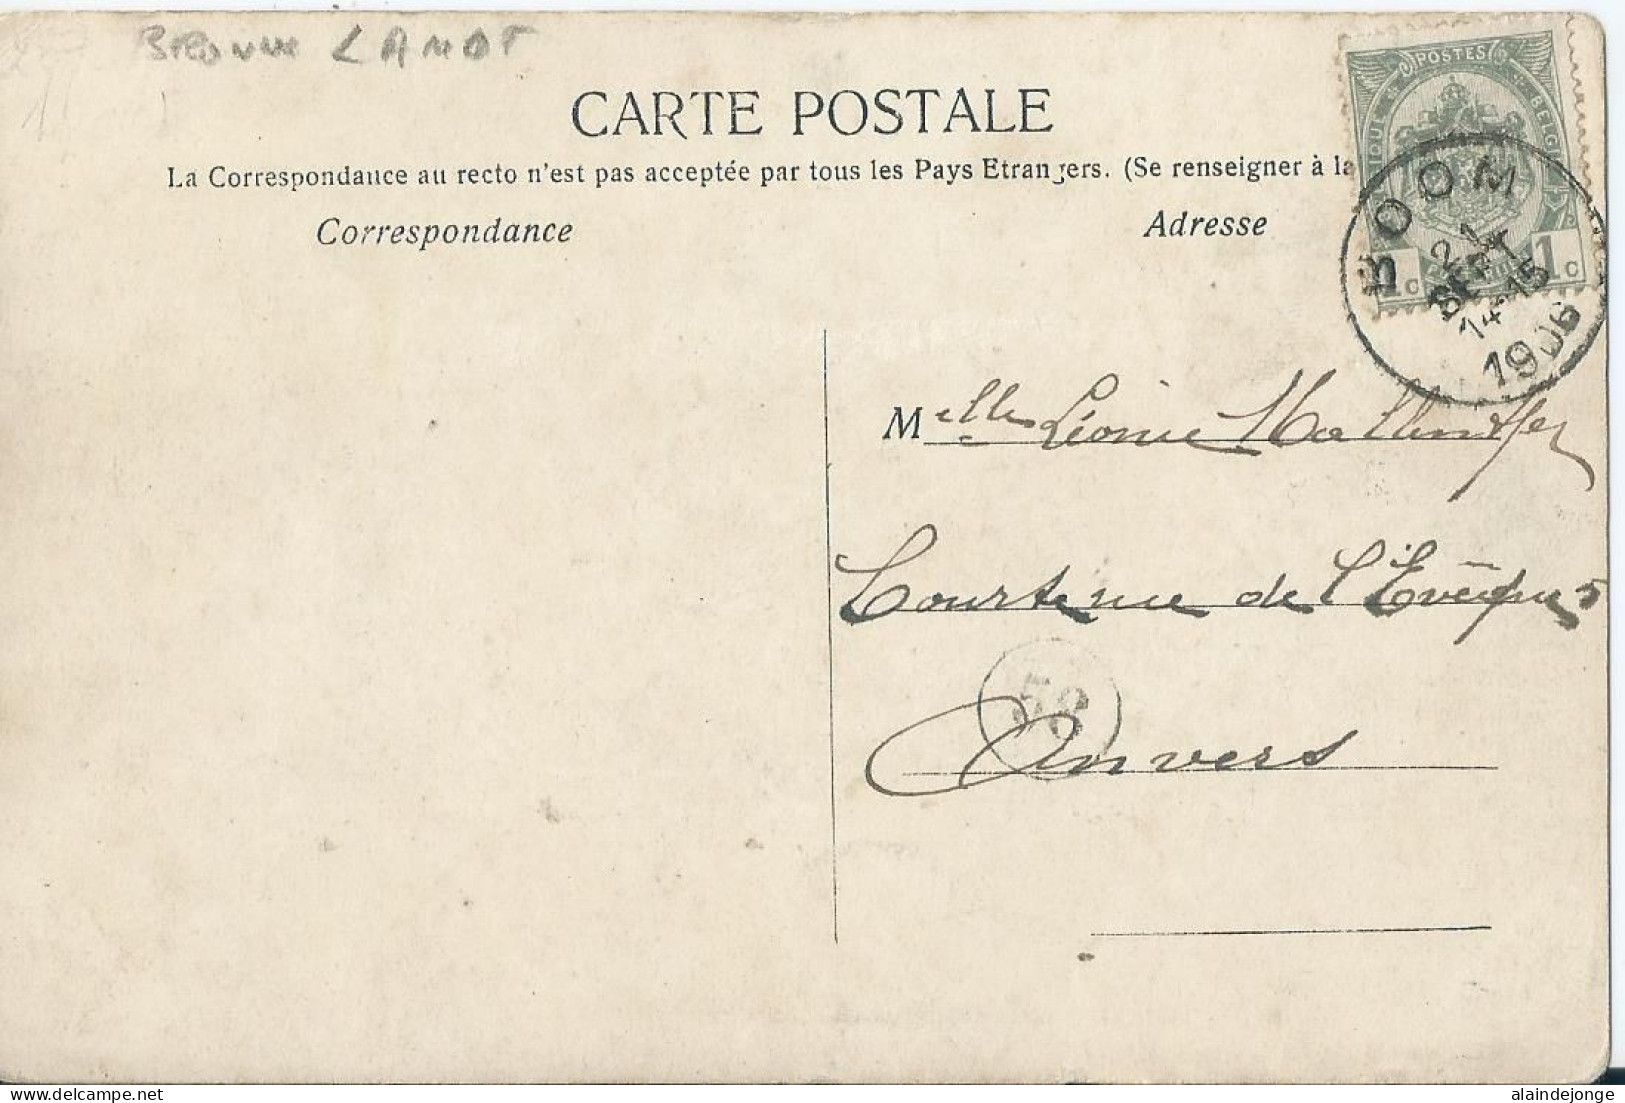 LAMOT
CARTE POSTALE
La Correspondance au recto n'est pas acceptée par tous les Pays Etrangers. (Se renseigner à la
Correspondance
Adresse
POSTES
BELGI
IQUE
1c
1c
BOOM
21
SEPT
14-15
1906
Melle Léonie
Courtenue de l'Evêque 5
58
Anvers
www.delcampe.net
alaindejonge